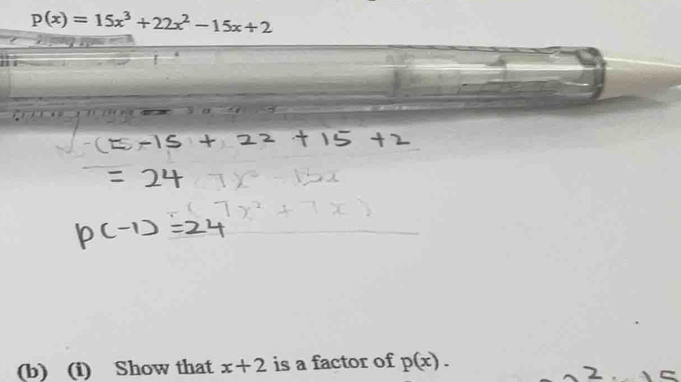 p(x) = 15x³ + 22x² − 15x + 2
-15 + 22 + 15 + 2
= 24
(7x² + 7x)
p(-1) = 24
(b) (i) Show that x+2 is a factor of p(x).